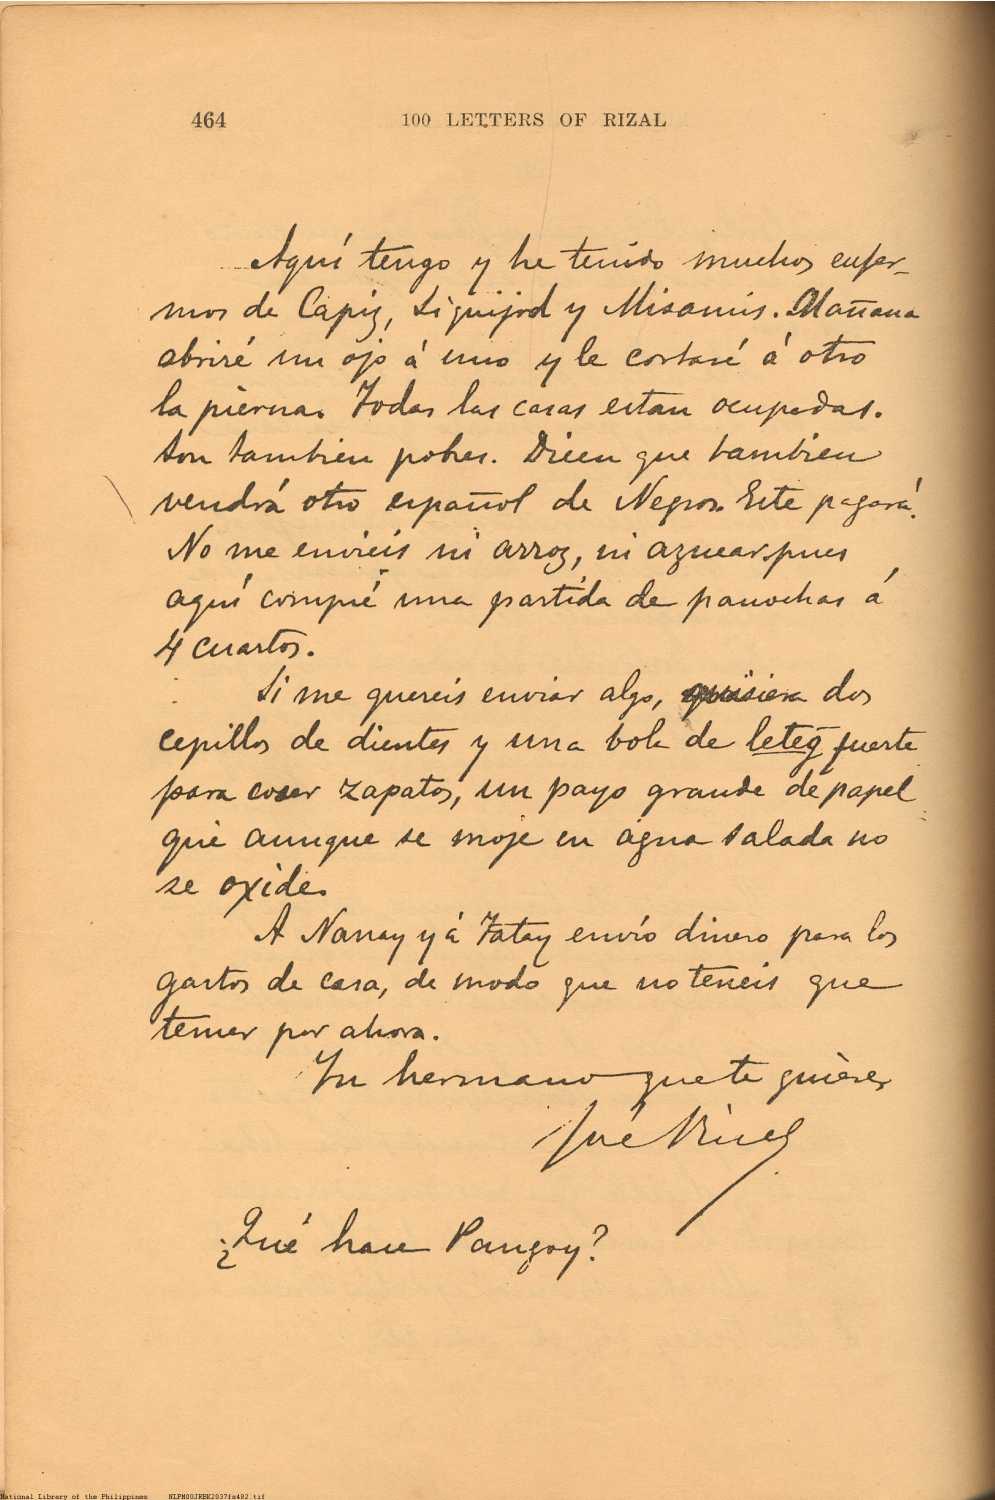 464
100 LETTERS OF RIZAL
Aquí tengo y he tenido muchos enfer-
mos de Capiz, Siquijod y Misamis. Mañana
abriré un ojo á uno y le cortaré á otro
la pierna. Todas las casas estan ocupadas.
Son tambien pobres. Dicen que tambien
vendrá otro español de Negros. Este pagará.
No me envieis ni arroz, ni azucar pues
aquí compré una partida de panochas á
4 cuartos.
Si me quereis enviar algo, quisiera dos
cepillos de dientes y una bola de leteg̃ fuerte
para coser zapatos, un payo grande de papel
que aunque se moje en agua salada no
se oxide.
A Nanay y á Tatay envío dinero para los
gastos de casa, de modo que no teneis que
temer por ahora.
Tu hermano que te quiere,
José Rizal
¿Qué hace Pangoy?
National Library of the Philippines NLPM00JRBK2037fs482.tif